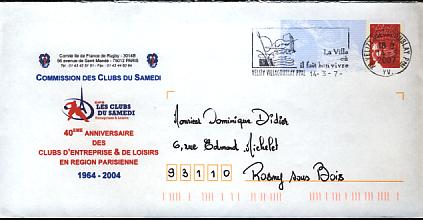 Comité Ile de France de Rugby - 3014B
56 avenue de Saint Mandé - 75012 PARIS
COMMISSION DES CLUBS DU SAMEDI
LES CLUBS
DU SAMEDI
Entreprises & Loisirs
40ÈME ANNIVERSAIRE
DES
CLUBS D'ENTREPRISE & DE LOISIRS
EN REGION PARISIENNE
1964 - 2004
La Ville
où
il fait bon vivre
VELIZY VILLACOUBLAY PPAL 14-3-7
2007
YV.
Monsieur Dominique Didier
6, rue Edmond Michelet
93110
Rosny sous Bois